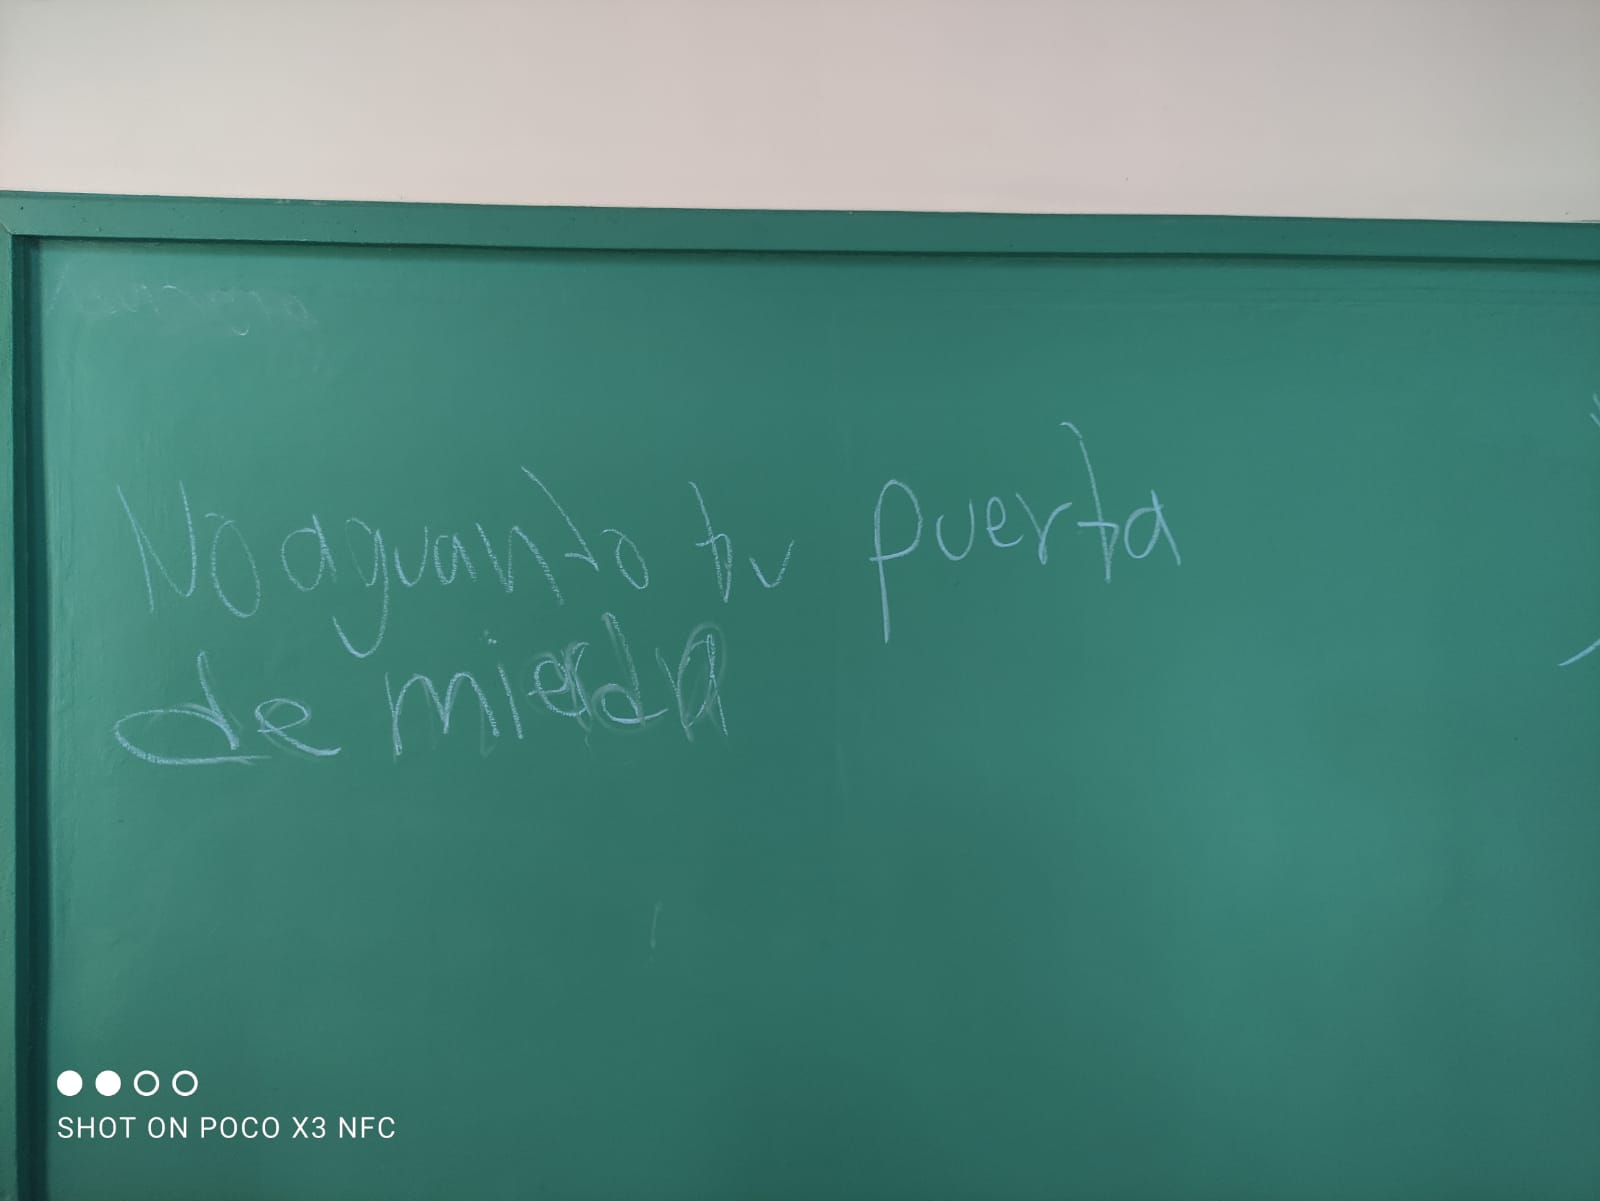 No aguanto tu puerta
de mierda
SHOT ON POCO X3 NFC